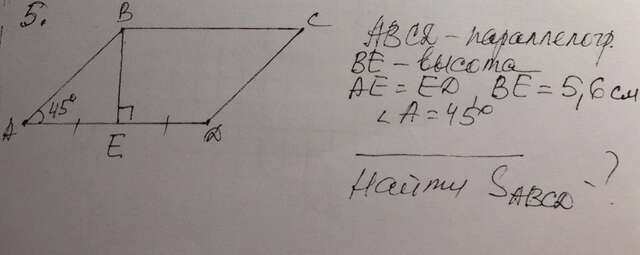 5.
B
C
45°
A
E
D
ABCD - параллелогр.
BE - высота
AE = ED, BE = 5,6 см
∠A = 45°
Найти S ABCD - ?